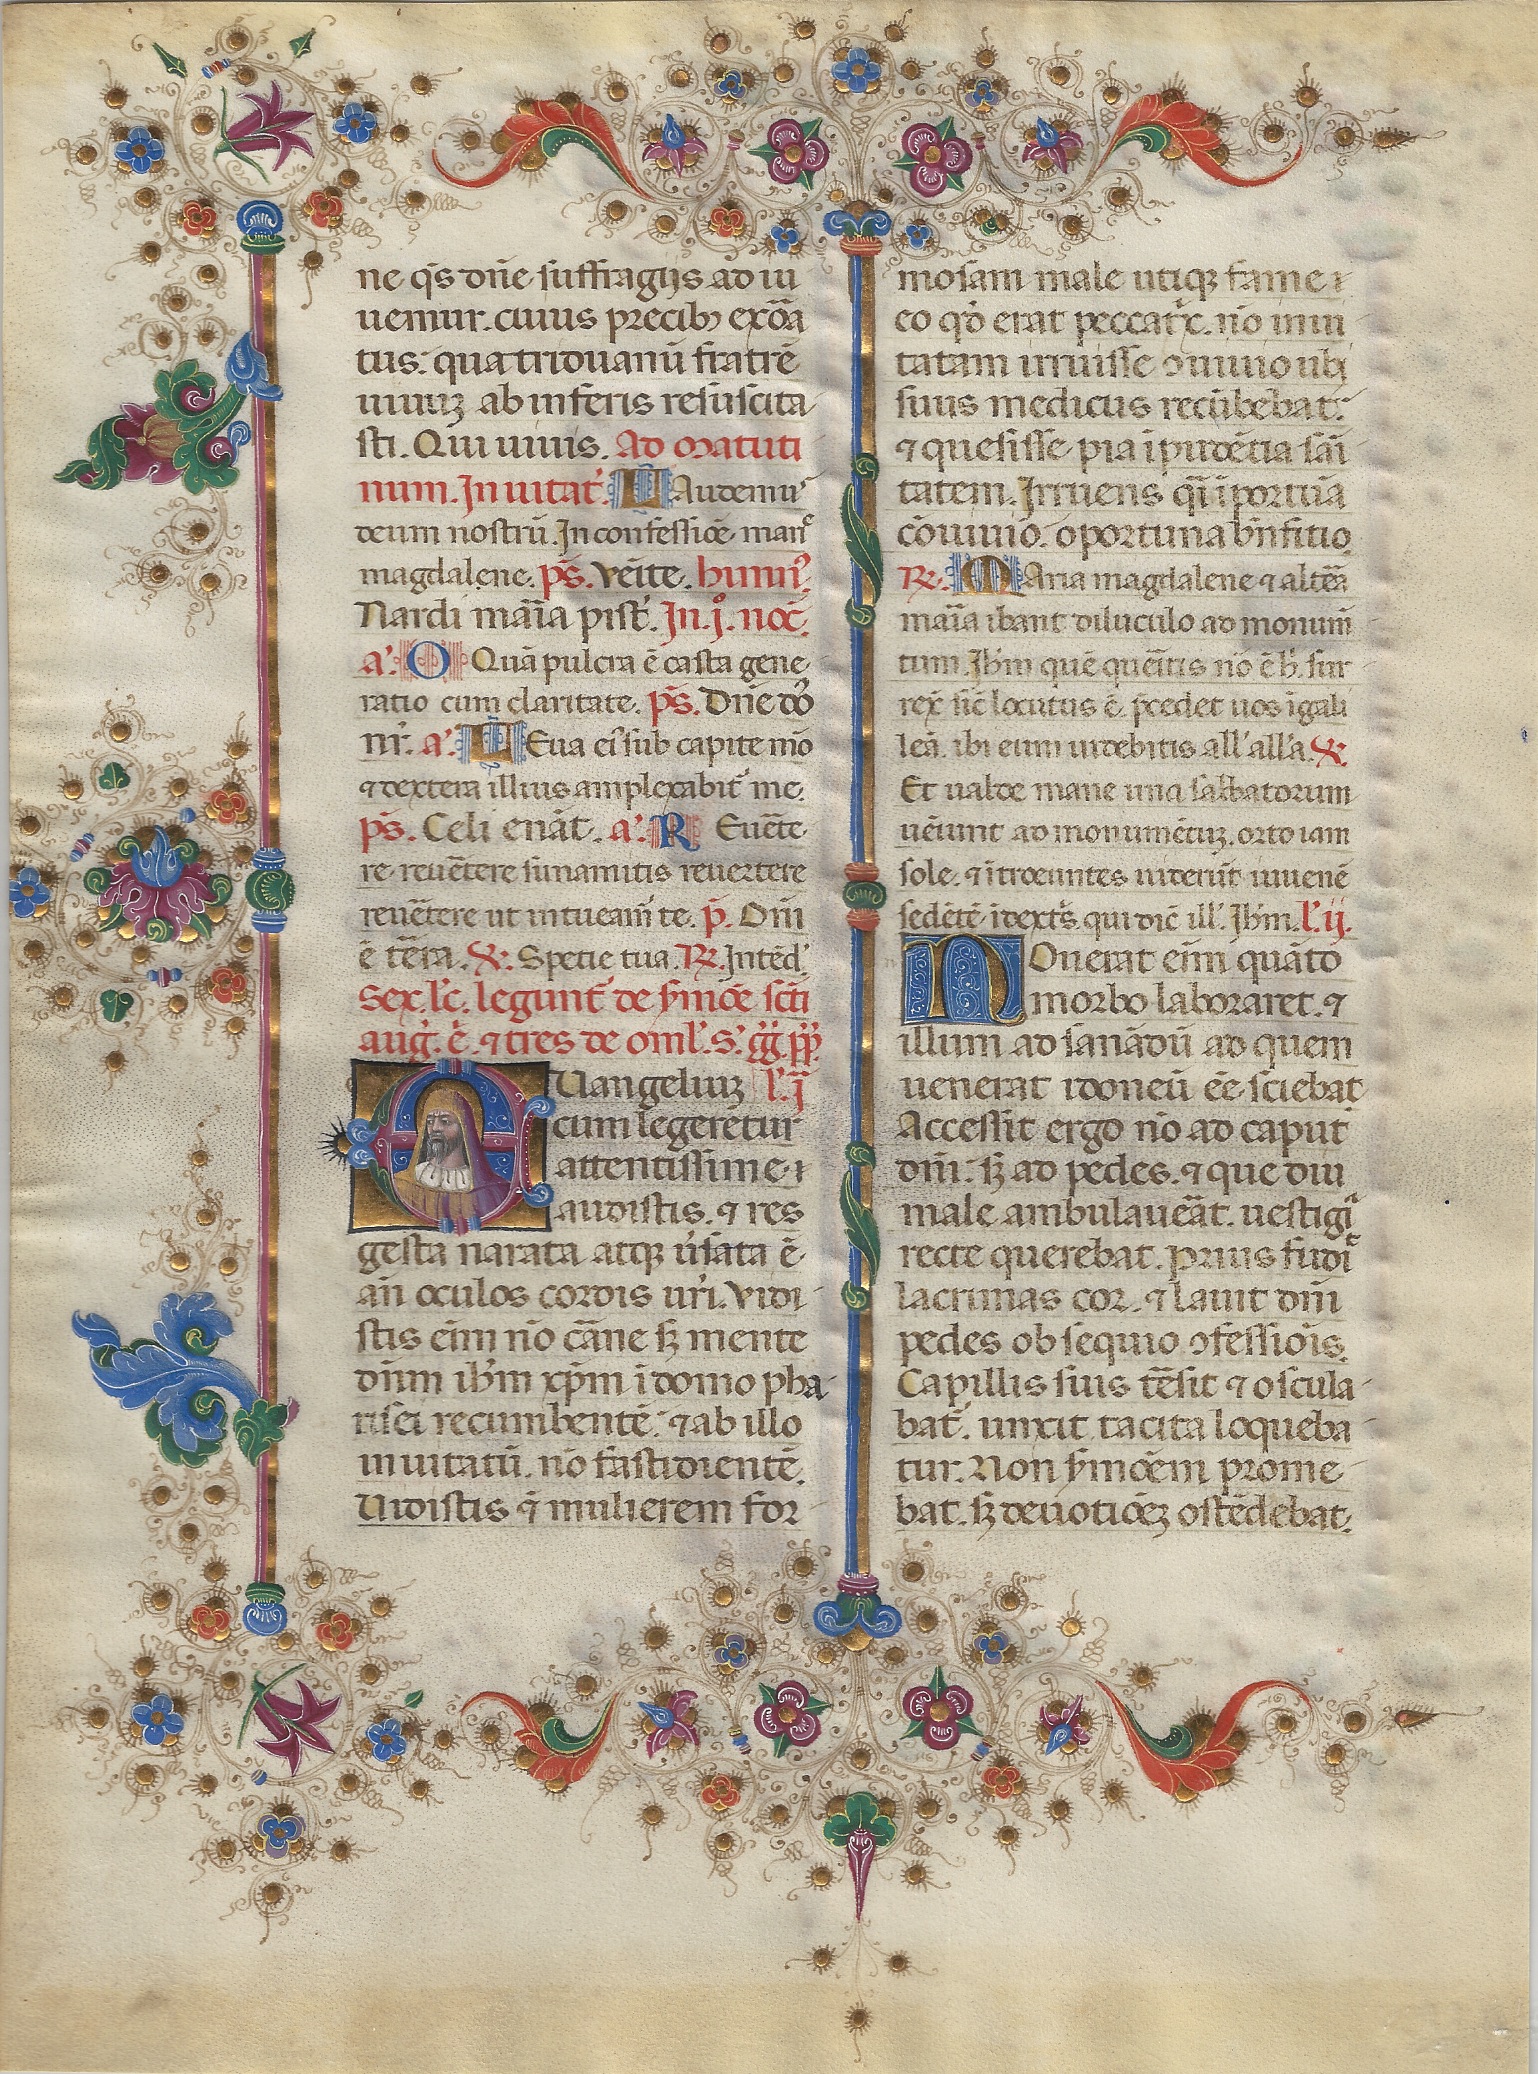 ne q̄s dn̄e suffragijs ad iu
uemur. cuius precib⁊ exōa
tus: quatriduanū fratrē
uiuuꝫ ab inferis resuscita
sti. Qui uiuis. Ad matuti
num. Inuitat̕. LAudemus
deum nostrū. In confessiōe mar̄
magdalene. p̄s. Veīte. hymꝰ.
Nardi maīa pist̕. In .j̊. noc̄.
a̕. O Quā pulcra ē casta gene
ratio cum claritate. p̄s. Dn̄e dō
nr̄. a̕. LEua ei̕ sub capite mō
⁊ dextera illius amplexabit̕ me.
p̄s. Celi enāt. a̕. REuēte
re reuētere sunamitis reuertere
reuētere ut intueam̄ te. p̄. Dn̄i
ē tēra. ℣. Specie tua. ℟. Intēd̕
Sex. lc̄. legunt̕ de ẜmōe sc̄ti
aug̕. ē. ⁊ tres de oml̕. s̕. gg̕. pp̕.
EUangeliuꝫ l̕. j̄
cum legeretur
attentissime
audistis. ⁊ res
gesta narata atqꝫ ūsata ē
an̄ oculos cordis ur̄i. Vidi
stis eīm nō cāne sꝫ mente
dn̄um ih̄m xp̄m ī domo pha
risei recumbentē: ⁊ ab illo
inuitatū. nō fastidientē.
Uidistis ⁊ mulierem for
mosam male utiqꝫ fame ⁊
eo qd̄ erat peccatⁱx. nō inui
tatam irruisse ꝯuiuio ubi
suus medicus recūbebat:
⁊ quesisse pia īpudētia sāi
tatem. Irruens q̄i īportūa
cōuiuio. oportuna bn̄fitio.
℟. MAria magdalene ⁊ altēa
maīa ibant diluculo ad monum̄
tum. Ih̄m quē queītis nō ē h̕. sur
rex̄ sic̄ locutus ē. p̄cedet uos ī gali
leā. ibi eum uidebitis all̕a all̕a. ℣.
Et ualde mane una sabbatorum
uēiunt ad monumētuꝫ. orto iam
sole. ⁊ ītroeuntes uiderūt iuuenē
sedētē ī dext̕s. qui dic̄ ill̕. Ih̄m. l̕. ij.
NOuerat eīm quāto
morbo laboraret. ⁊
illum ad sanādū ad quem
uenerat idoneū eē sciebat
Accessit ergo nō ad caput
dn̄i. sꝫ ad pedes. ⁊ que diu
male ambulaueāt. uestigⁱa
recte querebat. Prius fudⁱ
lacrimas cor. ⁊ lauit dn̄i
pedes obsequio ꝯfessiōis.
Capillis suis tēsit ⁊ oscula
bat̕. unxit. tacita loqueba
tur. Non ẜmōem prome
bat. sꝫ deuotiōeꝫ ostēdebat.